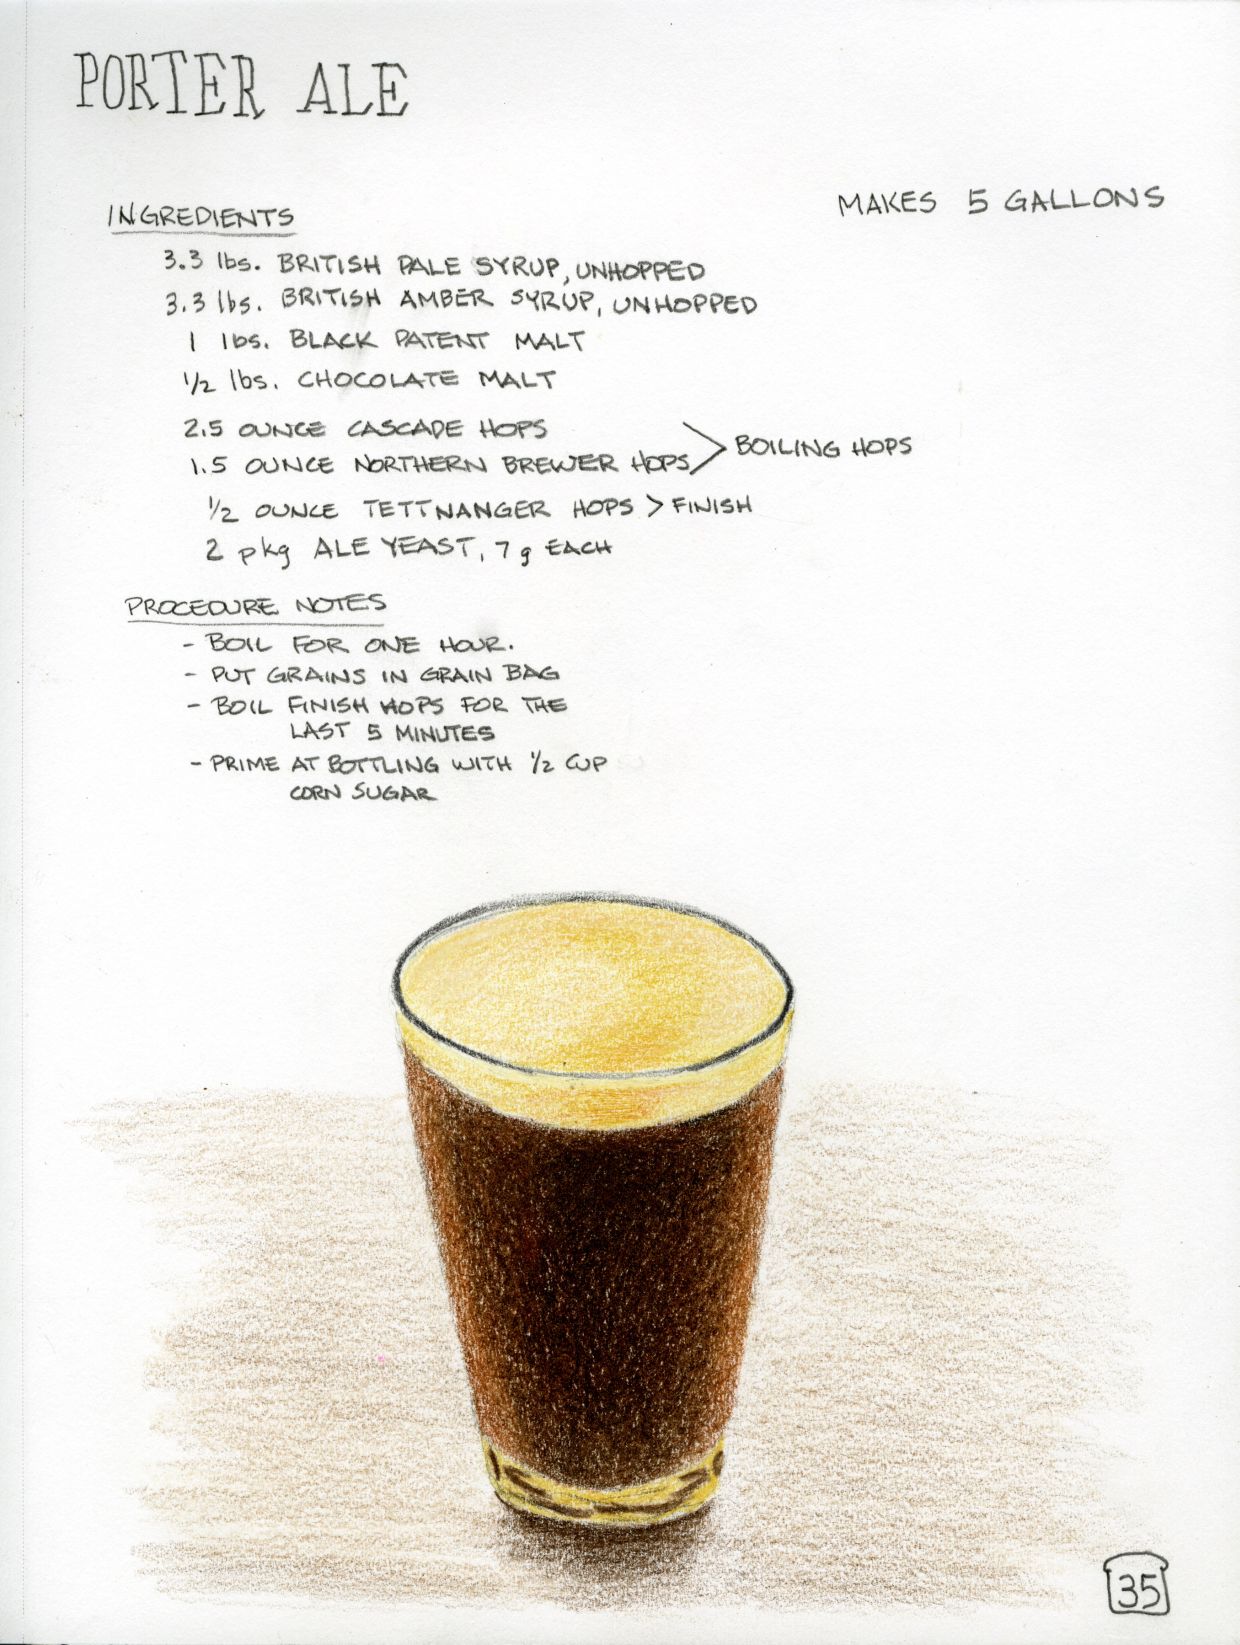 PORTER ALE
MAKES 5 GALLONS
INGREDIENTS
3.3 lbs. BRITISH PALE SYRUP, UNHOPPED
3.3 lbs. BRITISH AMBER SYRUP, UNHOPPED
1 lbs. BLACK PATENT MALT
1/2 lbs. CHOCOLATE MALT
2.5 OUNCE CASCADE HOPS
1.5 OUNCE NORTHERN BREWER HOPS > BOILING HOPS
1/2 OUNCE TETTNANGER HOPS > FINISH
2 pkg ALE YEAST, 7g EACH
PROCEDURE NOTES
- BOIL FOR ONE HOUR.
- PUT GRAINS IN GRAIN BAG
- BOIL FINISH HOPS FOR THE
LAST 5 MINUTES
- PRIME AT BOTTLING WITH 1/2 CUP
CORN SUGAR
35